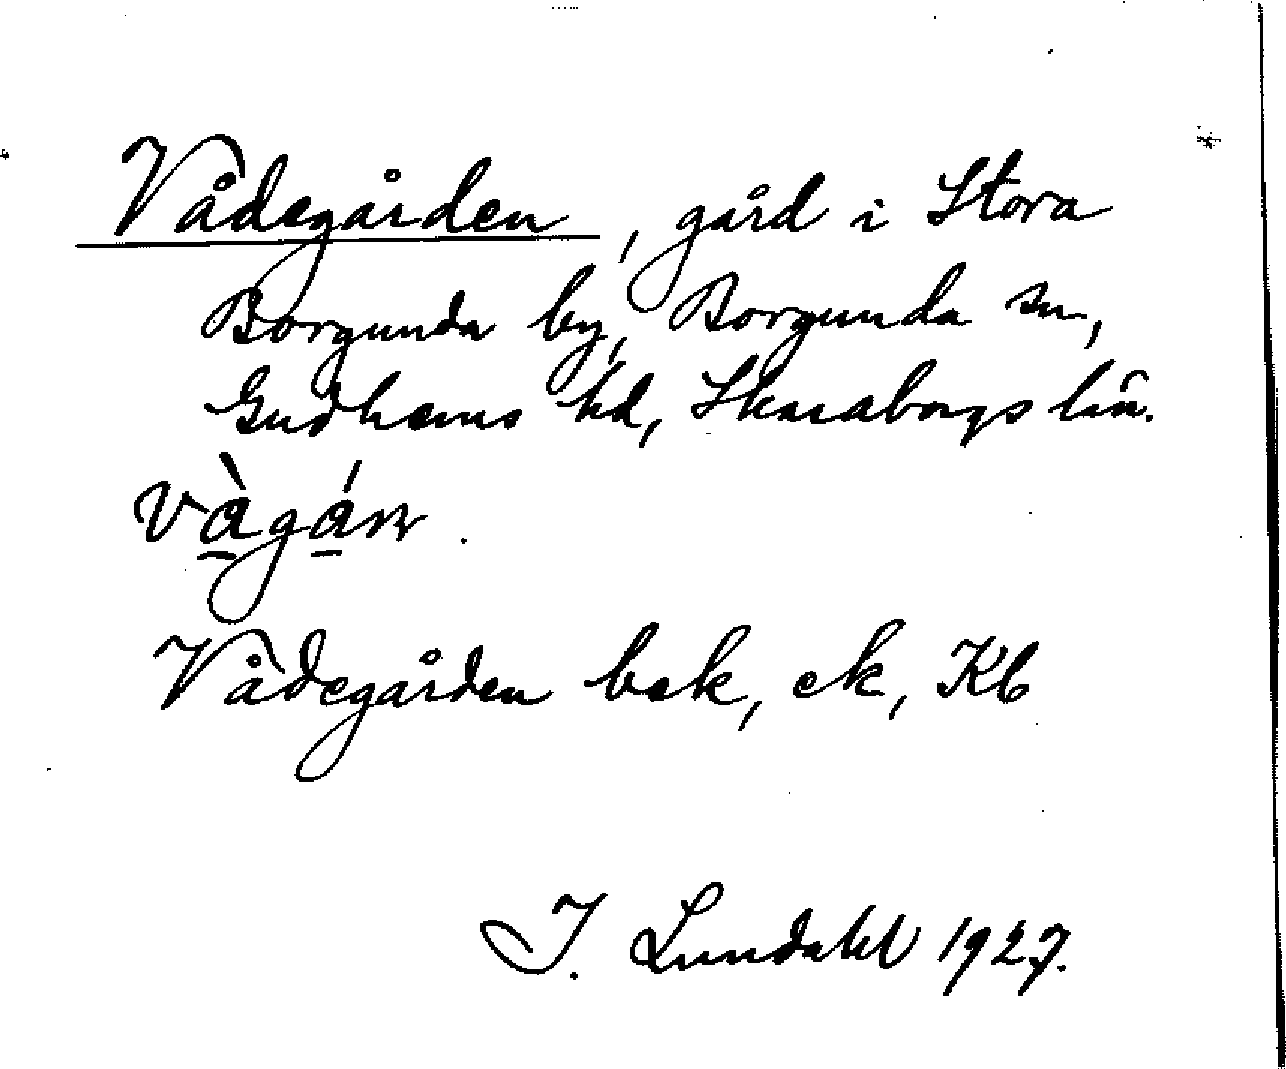 Vådegården, gård i Stora
Borgunda by, Borgunda sn,
Gudhems hd, Skaraborgs län.
Vådegården bek, ek, Kb
I. Lundahl 1927.